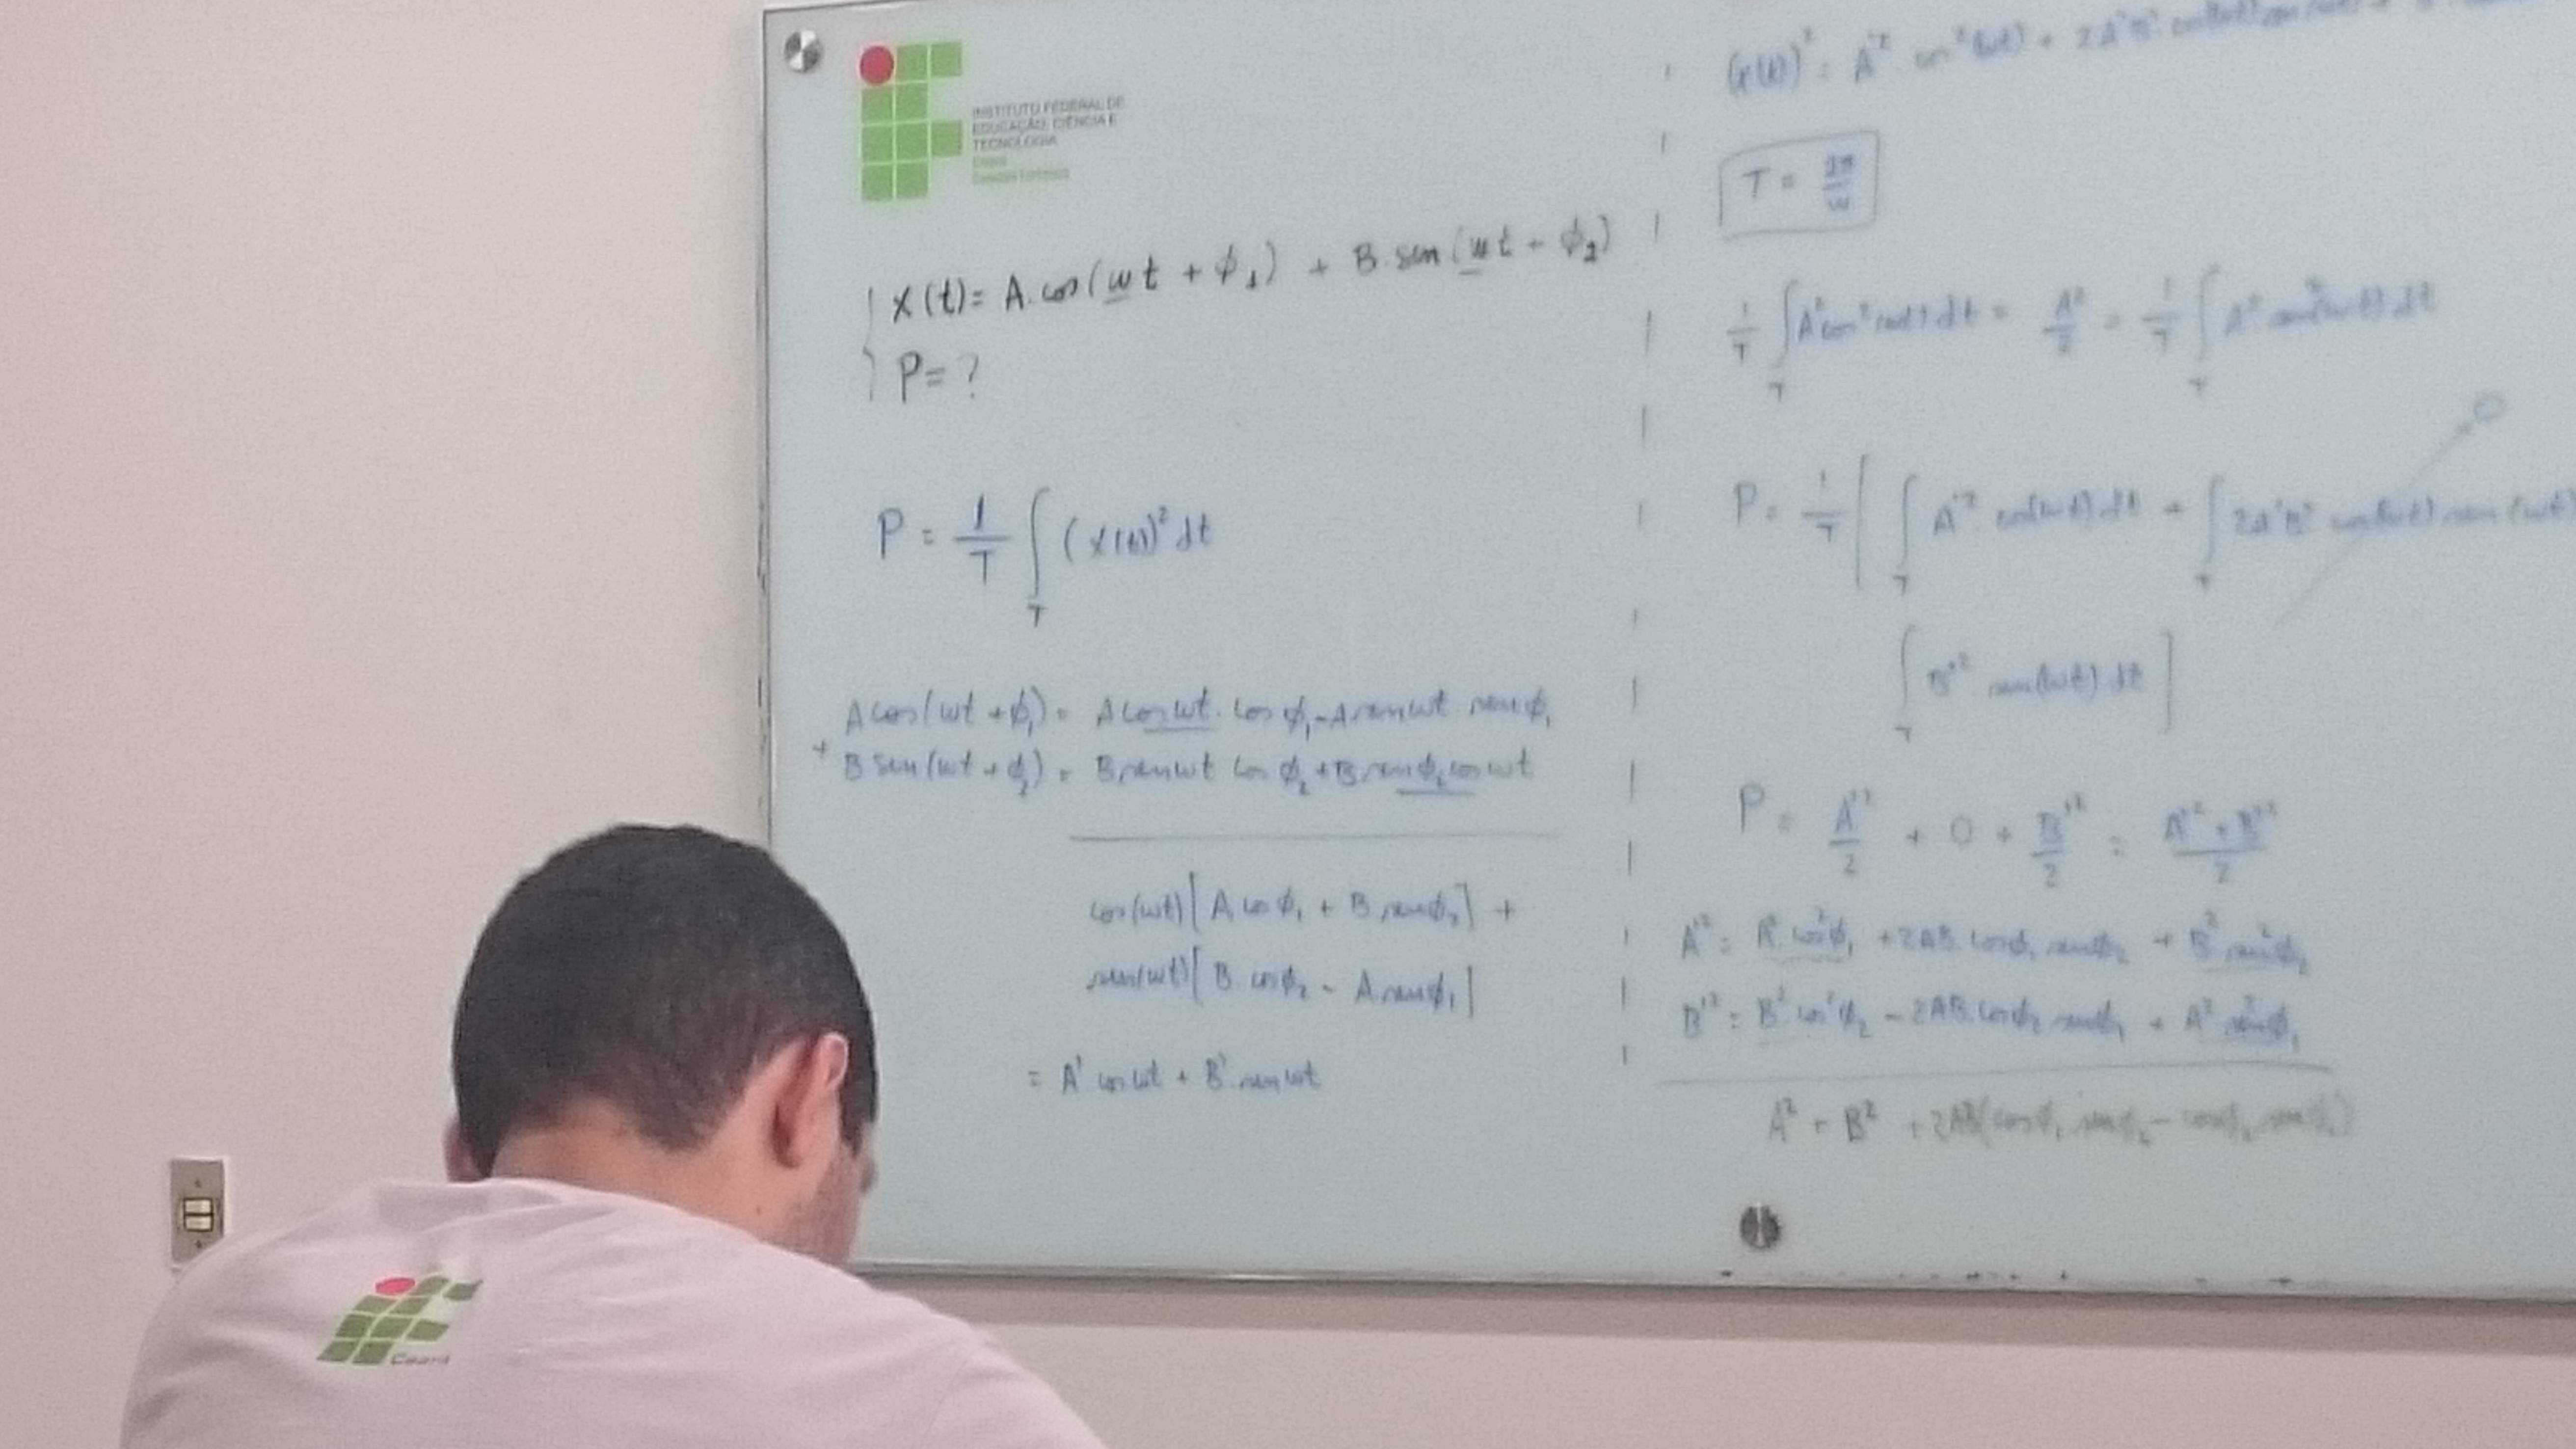 INSTITUTO FEDERAL DE
EDUCAÇÃO, CIÊNCIA E
TECNOLOGIA
Ceará
x(t) = A.cos(wt + ϕ₁) + B.sen(wt + ϕ₂)
P = ?
P = 1/T ∫_T (x(t))² dt
A cos(wt + ϕ₁) = A cos wt . cos ϕ₁ - A sen wt sen ϕ₁
+ B sen(wt + ϕ₂) = B sen wt cos ϕ₂ + B sen ϕ₂ cos wt
cos(wt)[A cos ϕ₁ + B sen ϕ₂] +
sen(wt)[B cos ϕ₂ - A sen ϕ₁]
= A' cos wt + B' sen wt
(x(t))² = A'² cos²(wt) + 2A'B' cos(wt) sen(wt) +
T = 2π/w
1/T ∫_T A² cos²(wt) dt = A²/2 = 1/T ∫_T A² sen²(wt) dt
P = 1/T [ ∫_T A'² cos(wt) dt + ∫_T 2A'B' cos(wt) sen(wt) 0
∫_T B'² sen(wt) dt ]
P = A'²/2 + 0 + B'²/2 = A'² + B'²/2
A'² = A² cos² ϕ₁ + 2AB cos ϕ₁ sen ϕ₂ + B² sen² ϕ₂
B'² = B² cos² ϕ₂ - 2AB cos ϕ₂ sen ϕ₁ + A² sen² ϕ₁
A² + B² + 2AB(cos ϕ₁ sen ϕ₂ - cos ϕ₂ sen ϕ₁)
Ceará